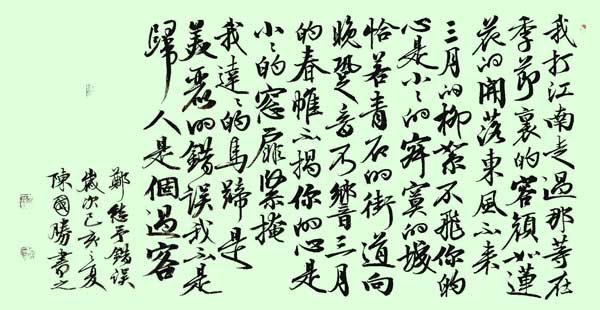 我打江南走過那等在
季節裏的容顏如蓮
花的開落東風不來
三月的柳絮不飛你的
心是小〻的寂寞的城
恰若青石的街道向
晚跫音不響三月
的春帷不揭你的心是
小〻的窗扉緊掩
我達〻的馬蹄是
美麗的錯誤我不是
歸人是個過客
鄭愁予錯誤
歲次己亥之夏
陳國勝書之